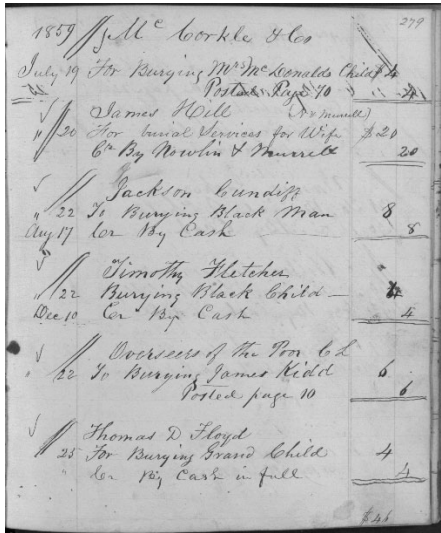 279
1859 J Mc Corkle & Co
July 19 For Burying Mrs McDonalds Child $4
Posted Page 70 4
James Hill (N & Murrell)
" 20 For burial Services for Wife $20
Cr By Nowlin & Murrell 20
Jackson Cundiff
" 22 To Burying Black Man 8
Aug 17 Cr By Cash 8
Timothy Fletcher
" 22 Burying Black Child — 4
Dec 10 Cr By Cash 4
Overseers of the Poor C L
" 22 To Burying James Kidd 6
Posted page 10 6
Thomas D. Floyd
25 For Burying Grand Child 4
" Cr By Cash in full 4
$46